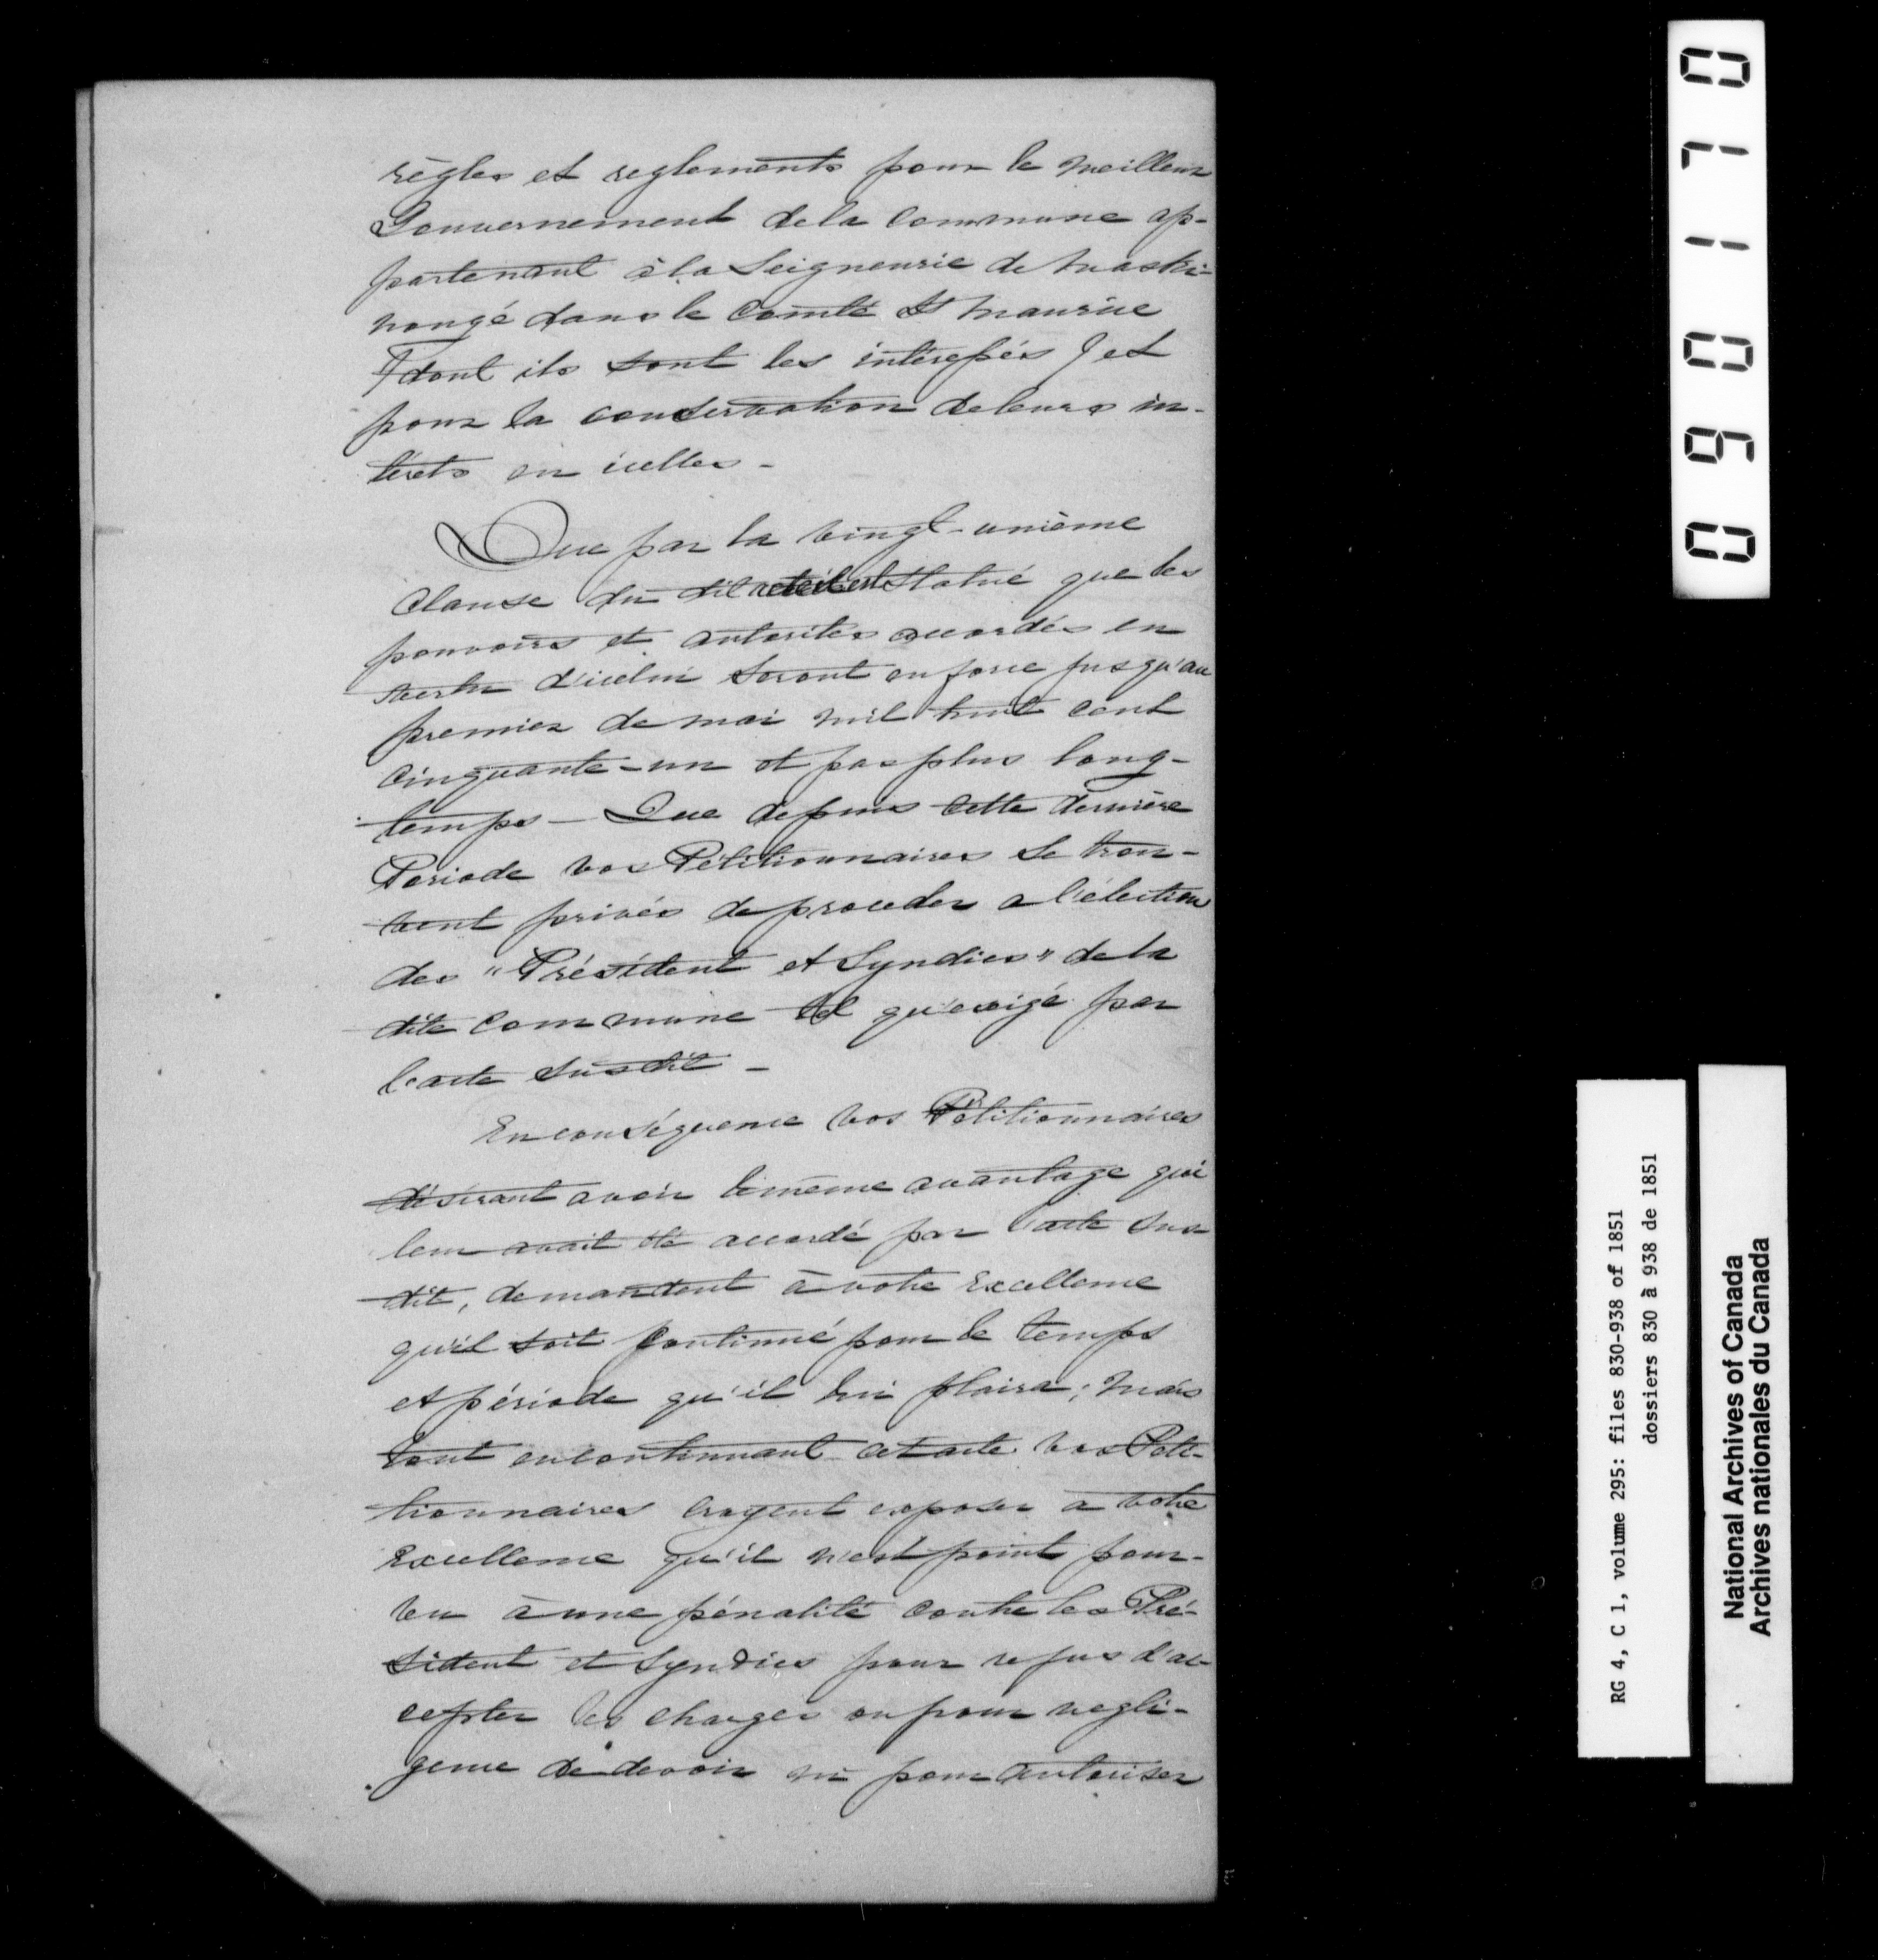 règles et reglements pour le meilleur
Gouvernement de la Commune ap-
partenant à la Seigneurie de Maski-
nongé dans le Comté St Maurice
(dont ils sont les intéressés) et
pour la conservation de leurs in-
térets en icelles -
Que par la vingt-unième
Clause du dit acte il est Statué que les
pouvoirs et autorités accordés en
vertu d'icelui seront en force jusqu'au
premier de mai mil huit cent
cinquante-un et pas plus long-
temps - Que depuis cette dernière
Periode vos Pétitionnaires se trou-
vent privés de proceder a l'élection
des "Président et Syndics" de la
dite Commune tel qu'exigé par
l'acte susdit -
En conséquence vos Pétitionnaires
désirant avoir le même avantage qui
leur avait été accordé par l'acte sus
dit, demandent à votre Excellence
qu'il soit continué pour le temps
et période qu'il lui plaira; mais
tout en continuant cet acte vos Peti-
tionnaires croyent exposer a votre
Excellence qu'il n'est point pour-
vu à une pénalité contre les Pré-
sident et Syndics pour refus d'ac-
cepter les charges ou pour negli-
gence de devoir ni pour autoriser
090170
RG 4, C 1, volume 295: files 830-938 of 1851
dossiers 830 à 938 de 1851
National Archives of Canada
Archives nationales du Canada